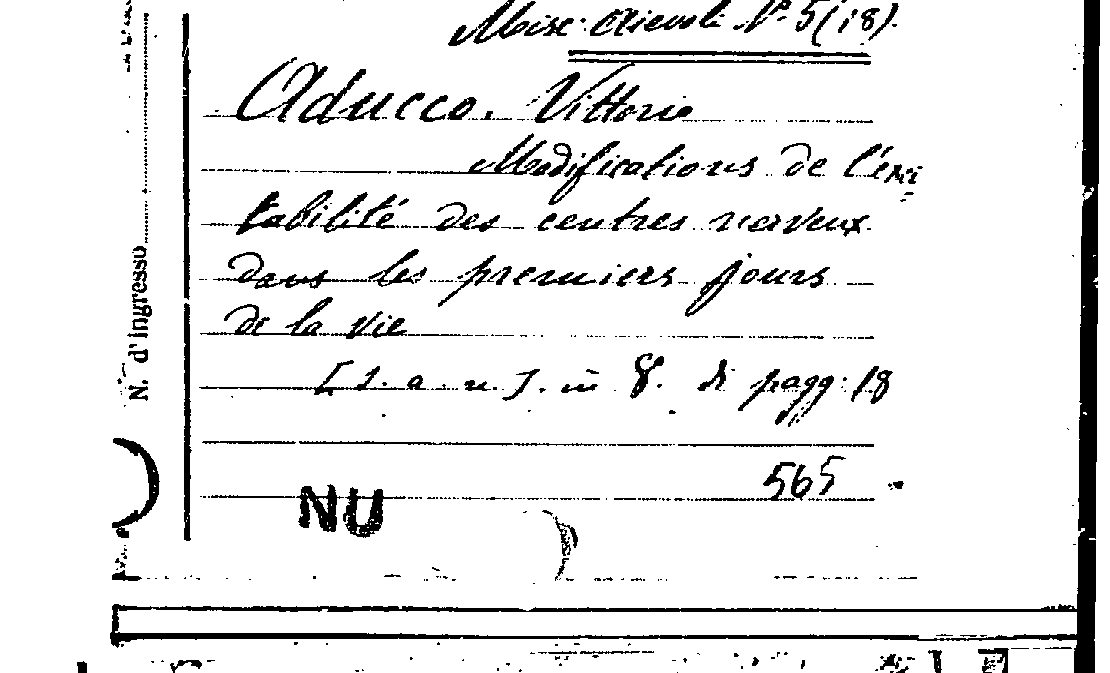 Misc. Airoli N° 5 (18).
Aducco. Vittorio
Modifications de l'exci
tabilité des centres nerveux
dans les premiers jours
de la vie
[s. a. n.]. in 8. di pagg. 18
565
NU
N. d'ingresso